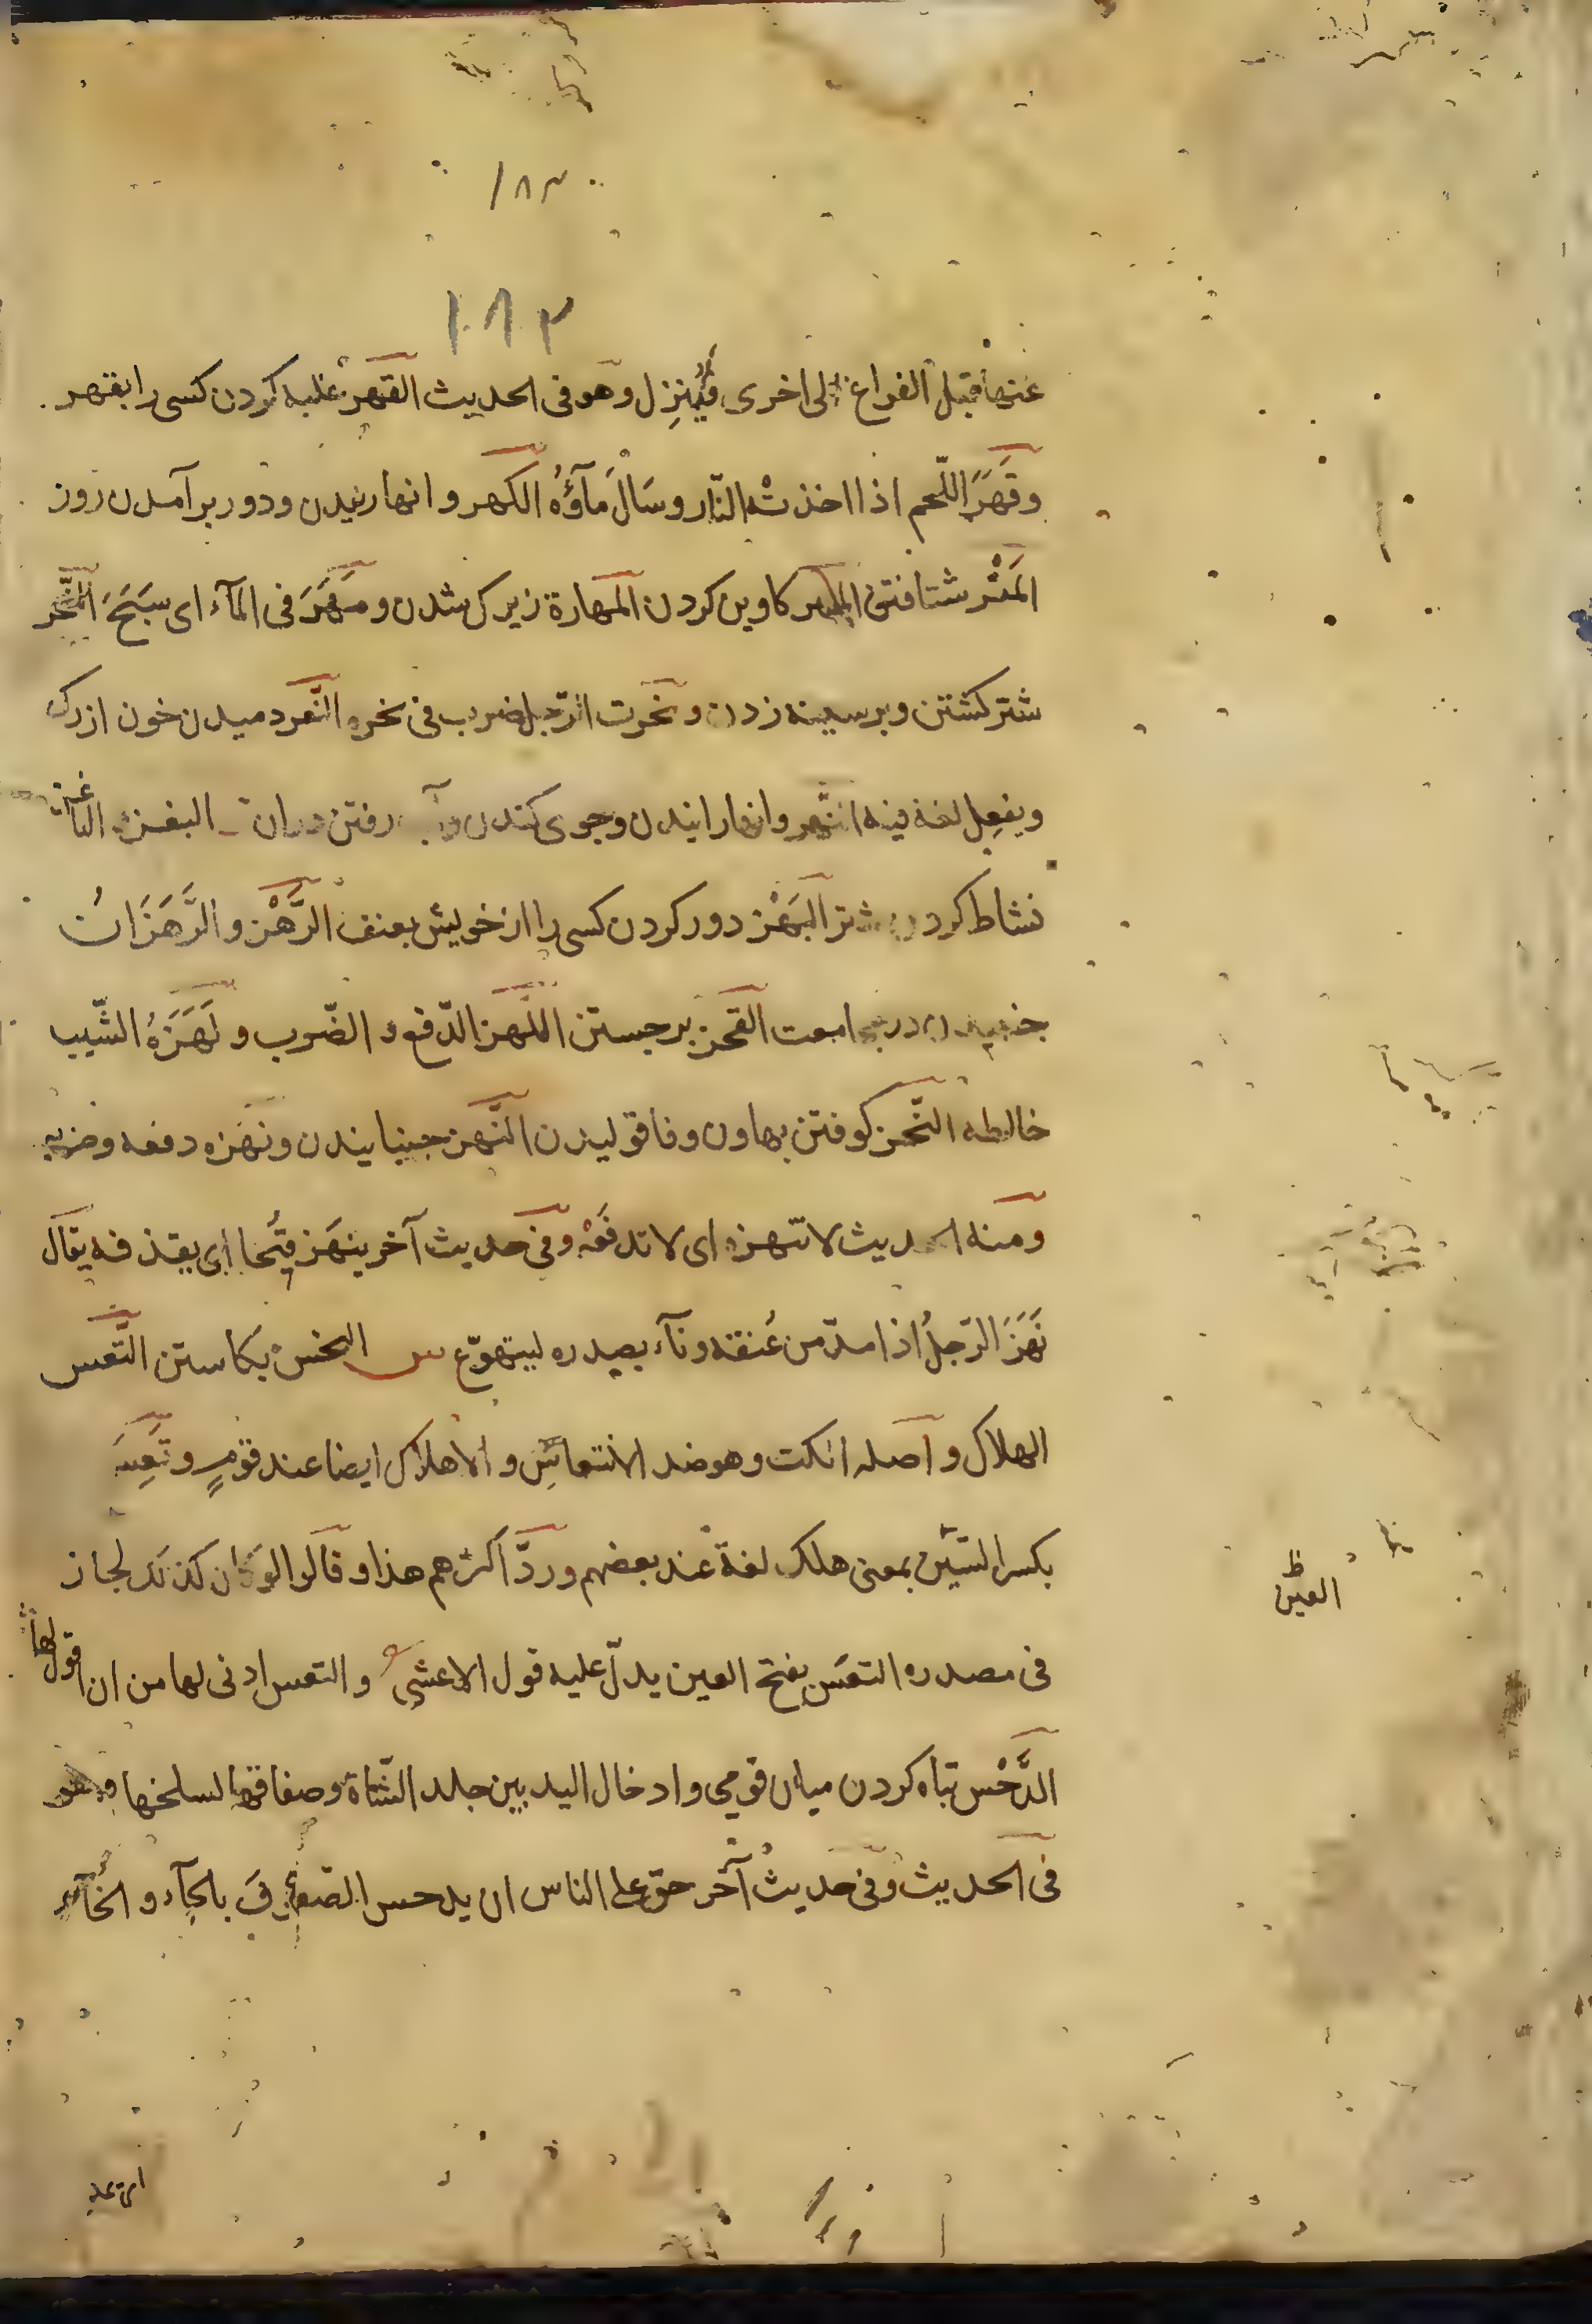 ١٨٣
١٨٣
عنها قبل الفراغ الى اخرى فيُنزِل وهو فى الحديث القهر غلبه كردن كسى را بقهر
وقَهَرَ اللّحم اذا اخذتْه النّار وسَالَ مَآؤُه الكهر وانهاريدن ودور برآمدن روز
المَتْر شتافتن المهر كاوين كردن المهارة زيرك شدن ومَهَرَ فى المآء اى سبَحَ النَّحر
شتر كشتن وبر سينه زدن ونحرت الرّجل ضرب فى نحره النَّعر دميدن خون از رك
ويفعِل لغة فيه النّهر وانهارانيدن وجوى كندن رفتن دران البغز
نشاط كردن شتر البَهْز دور كردن كسى را از خويش بعنف الرَّهْز والرَّهَزَانُ
جنبيدن در مجامعت القحز برجستن اللَّهز الدّفع و الضّرب ولَهَزَهُ الشّيب
خالطه النّحز كوفتن بهاون وفاقوليدن النَّهز جنبانيدن ونهزه دفعه وضربه
ومنه الحديث لا تنهزه اى لا تدفَعْه وفى حديث آخر ينهَز قيُحا اى يقذفه يقال
نَهَزَ الرّجلُ اذا مدّ من عُنقه ونآء بصدره ليتهوّع س البخس بكاستن التَّعس
الهلاك واصله الكت وهو ضد الانتعاش والاهلاك ايضا عند قومٍ وتَعِسَ
بكسر السّين بمعنى هلك لغة عند بعضهم وردَّ اكثرهم هذا وقالوا لو كان كذلك لجاز
العين ظ
فى مصدره التعَس بفتح العين يدلّ عليه قول الاعشى والتعس ادنى لها من ان اقول لها
الدَّحْس تباه كردن ميان قومى وادخال اليد بين جلد الشّاة وصفاقها لسلخها وهو
فى الحديث وفى حديثٌ آخر حقّ على الناس ان يدحس الصفوفَ بالحآء والخآء